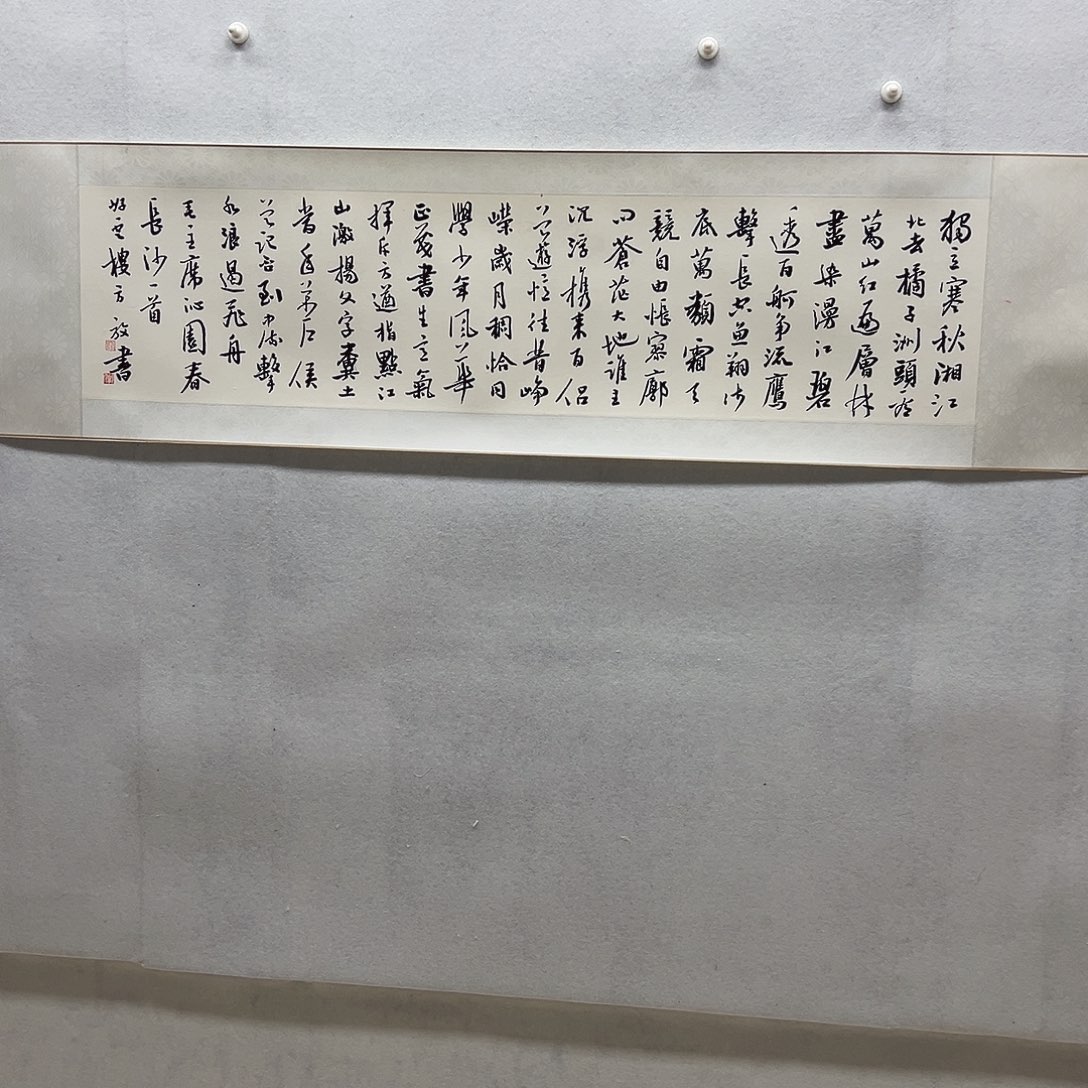 獨立寒秋湘江
北去橘子洲頭看
萬山紅遍層林
盡染漫江碧
透百舸争流鷹
擊長空魚翔淺
底萬類霜天
競自由悵寥廓
問蒼茫大地誰主
沉浮携來百侶
曾遊憶往昔崢
嶸歲月稠恰同
學少年風華
正茂書生意氣
揮斥方遒指點江
山激揚文字糞土
當年萬户侯
曾記否到中流擊
水浪遏飛舟
毛主席沁園春
長沙一首
樓方放書